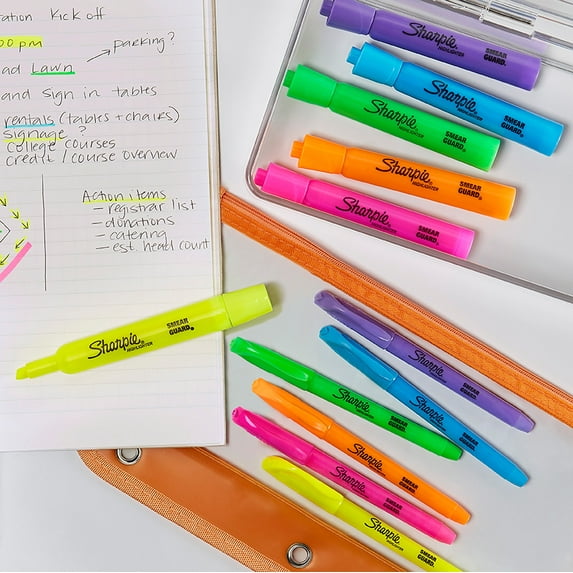 ation Kick off
00 pm
parking?
ad Lawn
and sign in tables
rentals (tables + chairs)
signage ?
college courses
credit / course overview
Action items
– registrar list
– donations
– catering
– est. head count
Sharpie®
HIGHLIGHTER
SMEAR GUARD®
Sharpie
HIGHLIGHTER
SMEAR GUARD.
Sharpie
HIGHLIGHTER
SMEAR GUARD®
Sharpie
HIGHLIGHTER
SMEAR GUARD®
Sharpie
HIGHLIGHTER
SMEAR GUARD®
Sharpie
HIGHLIGHTER
SMEAR GUARD®
Sharpie
HIGHLIGHTER
SMEAR GUARD.
Sharpie
HIGHLIGHTER
SMEAR GUARD.
Sharpie
HIGHLIGHTER
SMEAR GUARD.
Sharpie
HIGHLIGHTER
SMEAR GUARD.
Sharpie
HIGHLIGHTER
SMEAR GUARD.
Sharpie
HIGHLIGHTER
SMEAR GUARD.